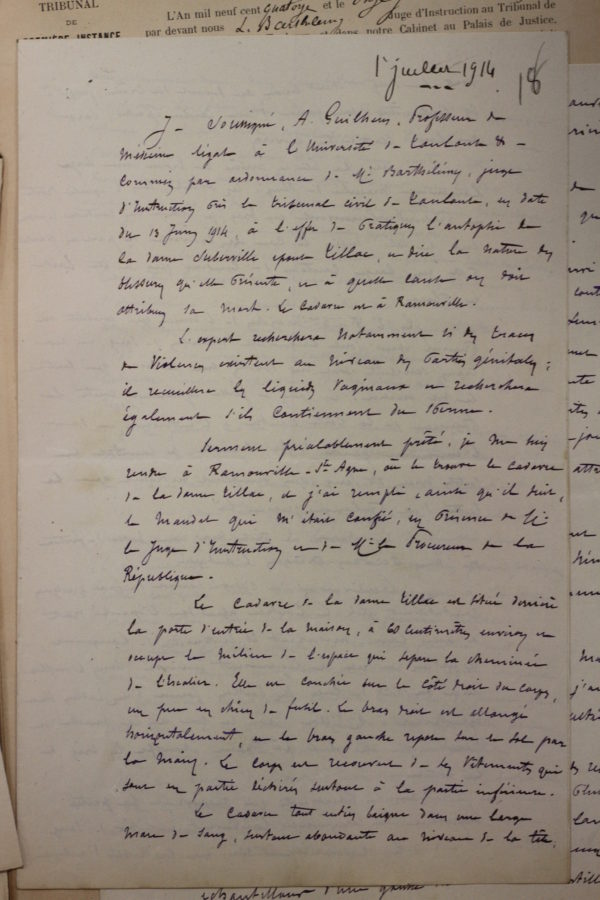 TRIBUNAL
DE
PREMIÈRE INSTANCE
L'An mil neuf cent quatorze et le onze
par devant nous L. Barthélemy Juge d'Instruction au Tribunal de
dans notre Cabinet au Palais de Justice.
1er juillet 1914
18
Je soussigné, A. Guilhem, Professeur de
Médecine légale à l'Université de Toulouse &
Commis par ordonnance de Mr Barthélémy, juge
d'Instruction près le tribunal civil de Toulouse, en date
du 13 Juin 1914, à l'effet de pratiquer l'autopsie de
la dame Suberville épouse Tillac, de dire la nature des
blessures qu'elle présente, et à quelle cause on doit
attribuer sa mort. Le cadavre est à Ramonville.
L'expert recherchera notamment si des traces
de violences existent au niveau des parties génitales;
il recueillera les liquides vaginaux et recherchera
également s'ils contiennent du sperme.
Serment préalablement prêté, je me suis
rendu à Ramonville-St Agne, où se trouve le cadavre
de la dame Tillac, et j'ai rempli, ainsi qu'il suit,
le mandat qui m'était confié, en présence de Mr
le Juge d'Instruction et de Mr le Procureur de la
République.
Le cadavre de la dame Tillac est situé derrière
la porte d'entrée de la maison, à 60 centimètres environ et
occupe le milieu de l'espace qui sépare la cheminée
de l'escalier. Elle est couchée sur le côté droit du corps,
un peu en chien de fusil. Le bras droit est allongé
horizontalement, et le bras gauche repose sur le sol par
la main. Le corps est recouvert de ses vêtements qui
sont en partie déchirés surtout à la partie inférieure.
Le cadavre tout entier baigne dans une large
mare de sang, surtout abondante au niveau de la tête.